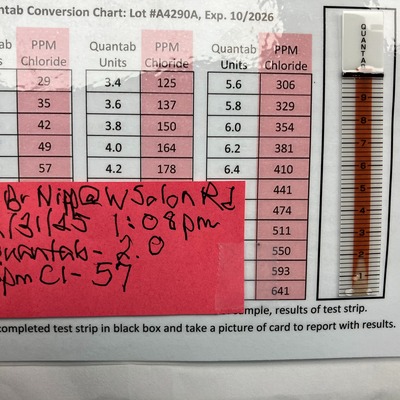 ntab Conversion Chart: Lot #A4290A, Exp. 10/2026
ab PPM Quantab PPM Quantab PPM
s Chloride Units Chloride Units Chloride
29 3.4 125 5.6 306
35 3.6 137 5.8 329
42 3.8 150 6.0 354
49 4.0 164 6.2 381
57 4.2 178 6.4 410
441
474
511
550
593
641
Br Nipp@W Salon Rd
/31/25 1:08pm
Quantab - 2.0
ppm Cl- 57
mple, results of test strip.
completed test strip in black box and take a picture of card to report with results.
QUANTAB
9
8
7
6
5
4
3
2
1